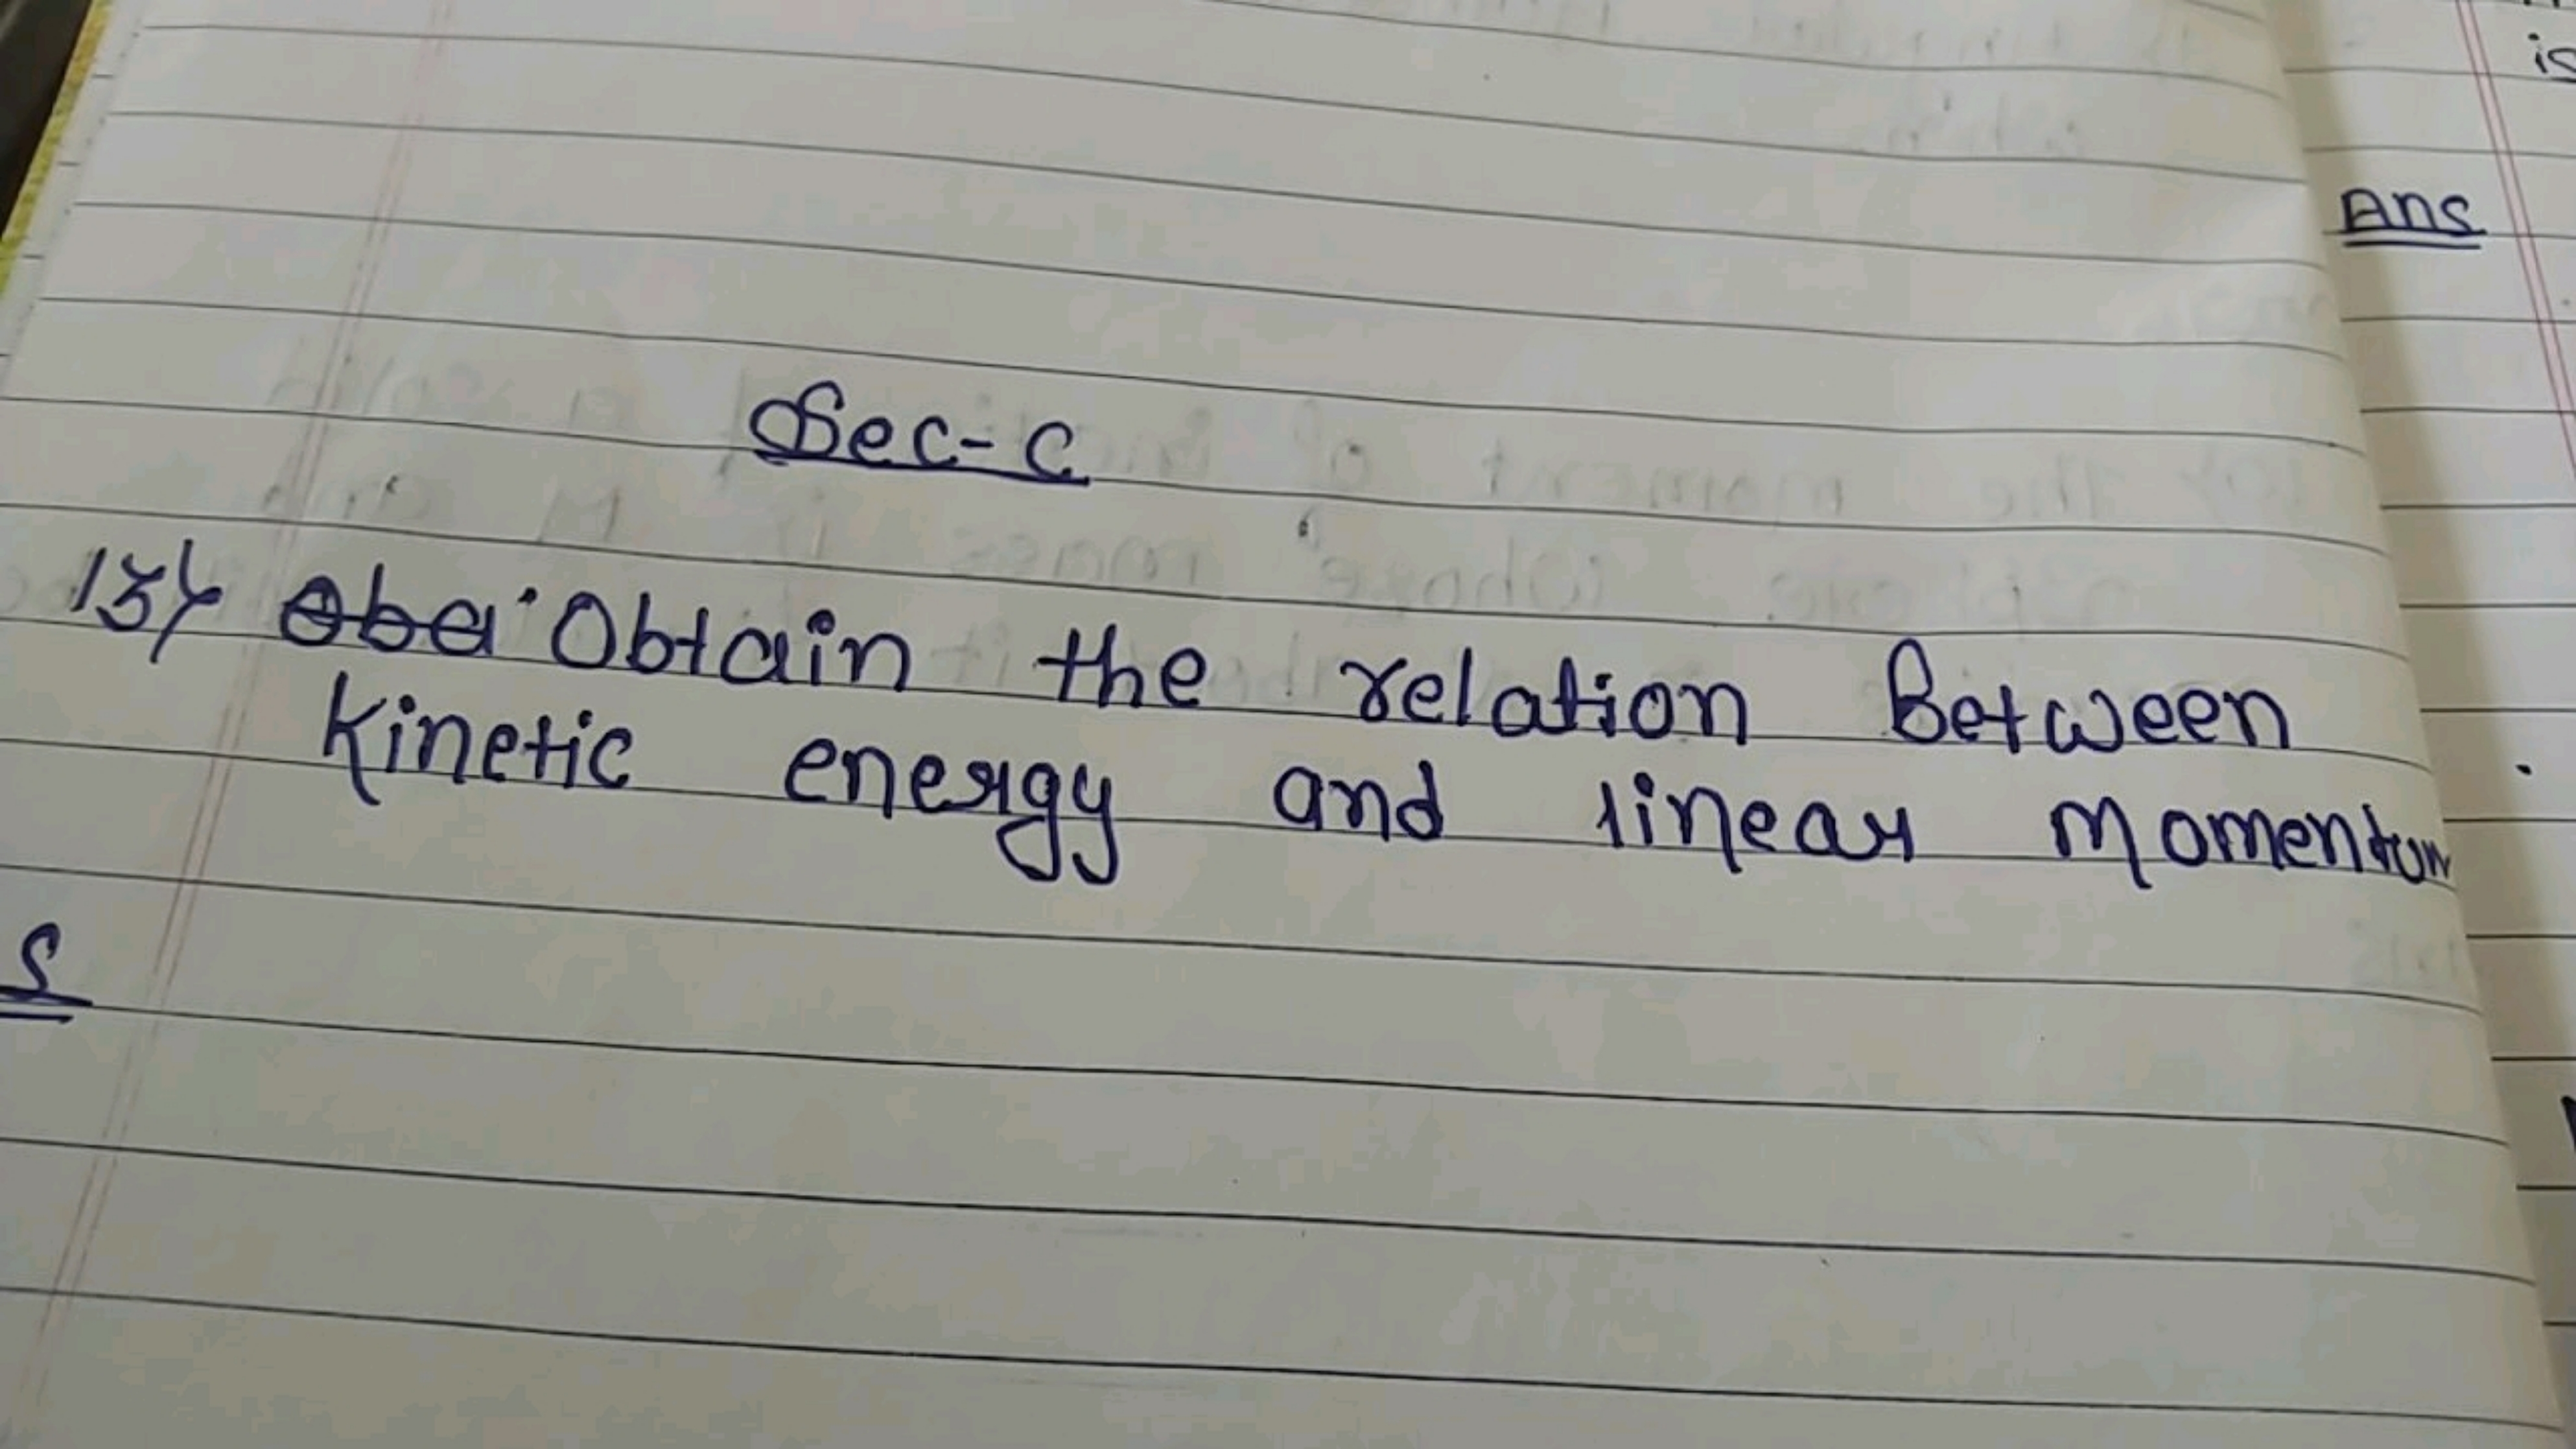 is
Ans
Sec-C
13) Obtain the relation Between
Kinetic energy and linear Momentum
S